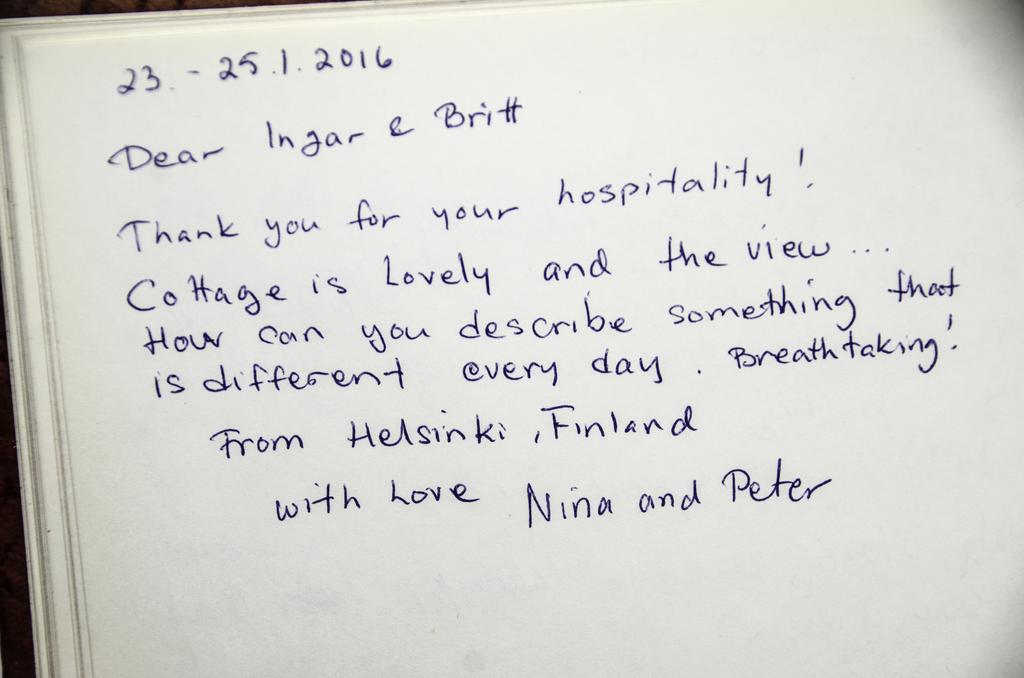 23. - 25.1.2016
Dear Ingar & Britt
Thank you for your hospitality!
Cottage is Lovely and the view...
How can you describe something that
is different every day. Breathtaking!
From Helsinki, Finland
with Love Nina and Peter